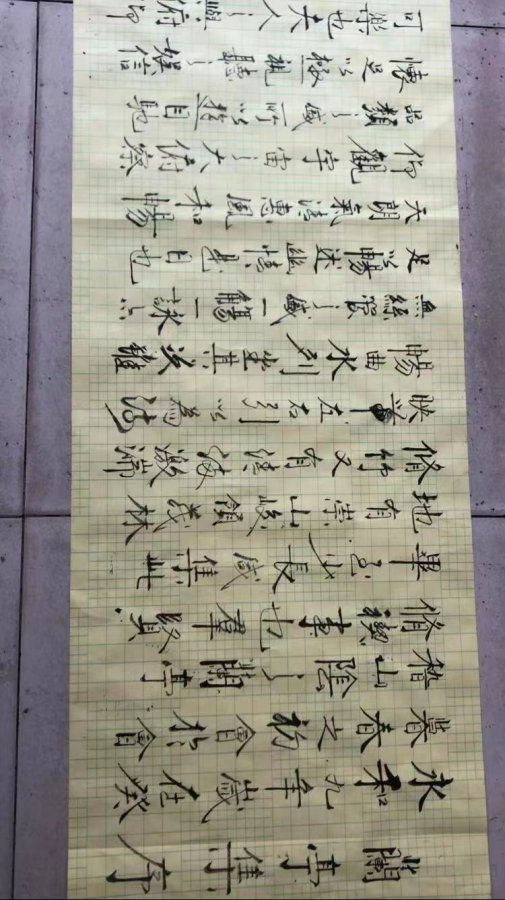 蘭亭集序
永和九年歲在癸
暮春之初會於會
稽山陰之蘭亭
修禊事也羣賢
畢至少長咸集此
地有崇山峻領茂林
修竹又有清流激湍
映左右引以為流
觴曲水列坐其次雖
無絲之盛一觴一詠亦
足以暢敘幽情是日也
天朗氣清惠風和暢
仰觀宇宙之大俯察
品類之盛所以遊目騁
懷足以極視聽之娛信
可樂也夫人之與俯仰